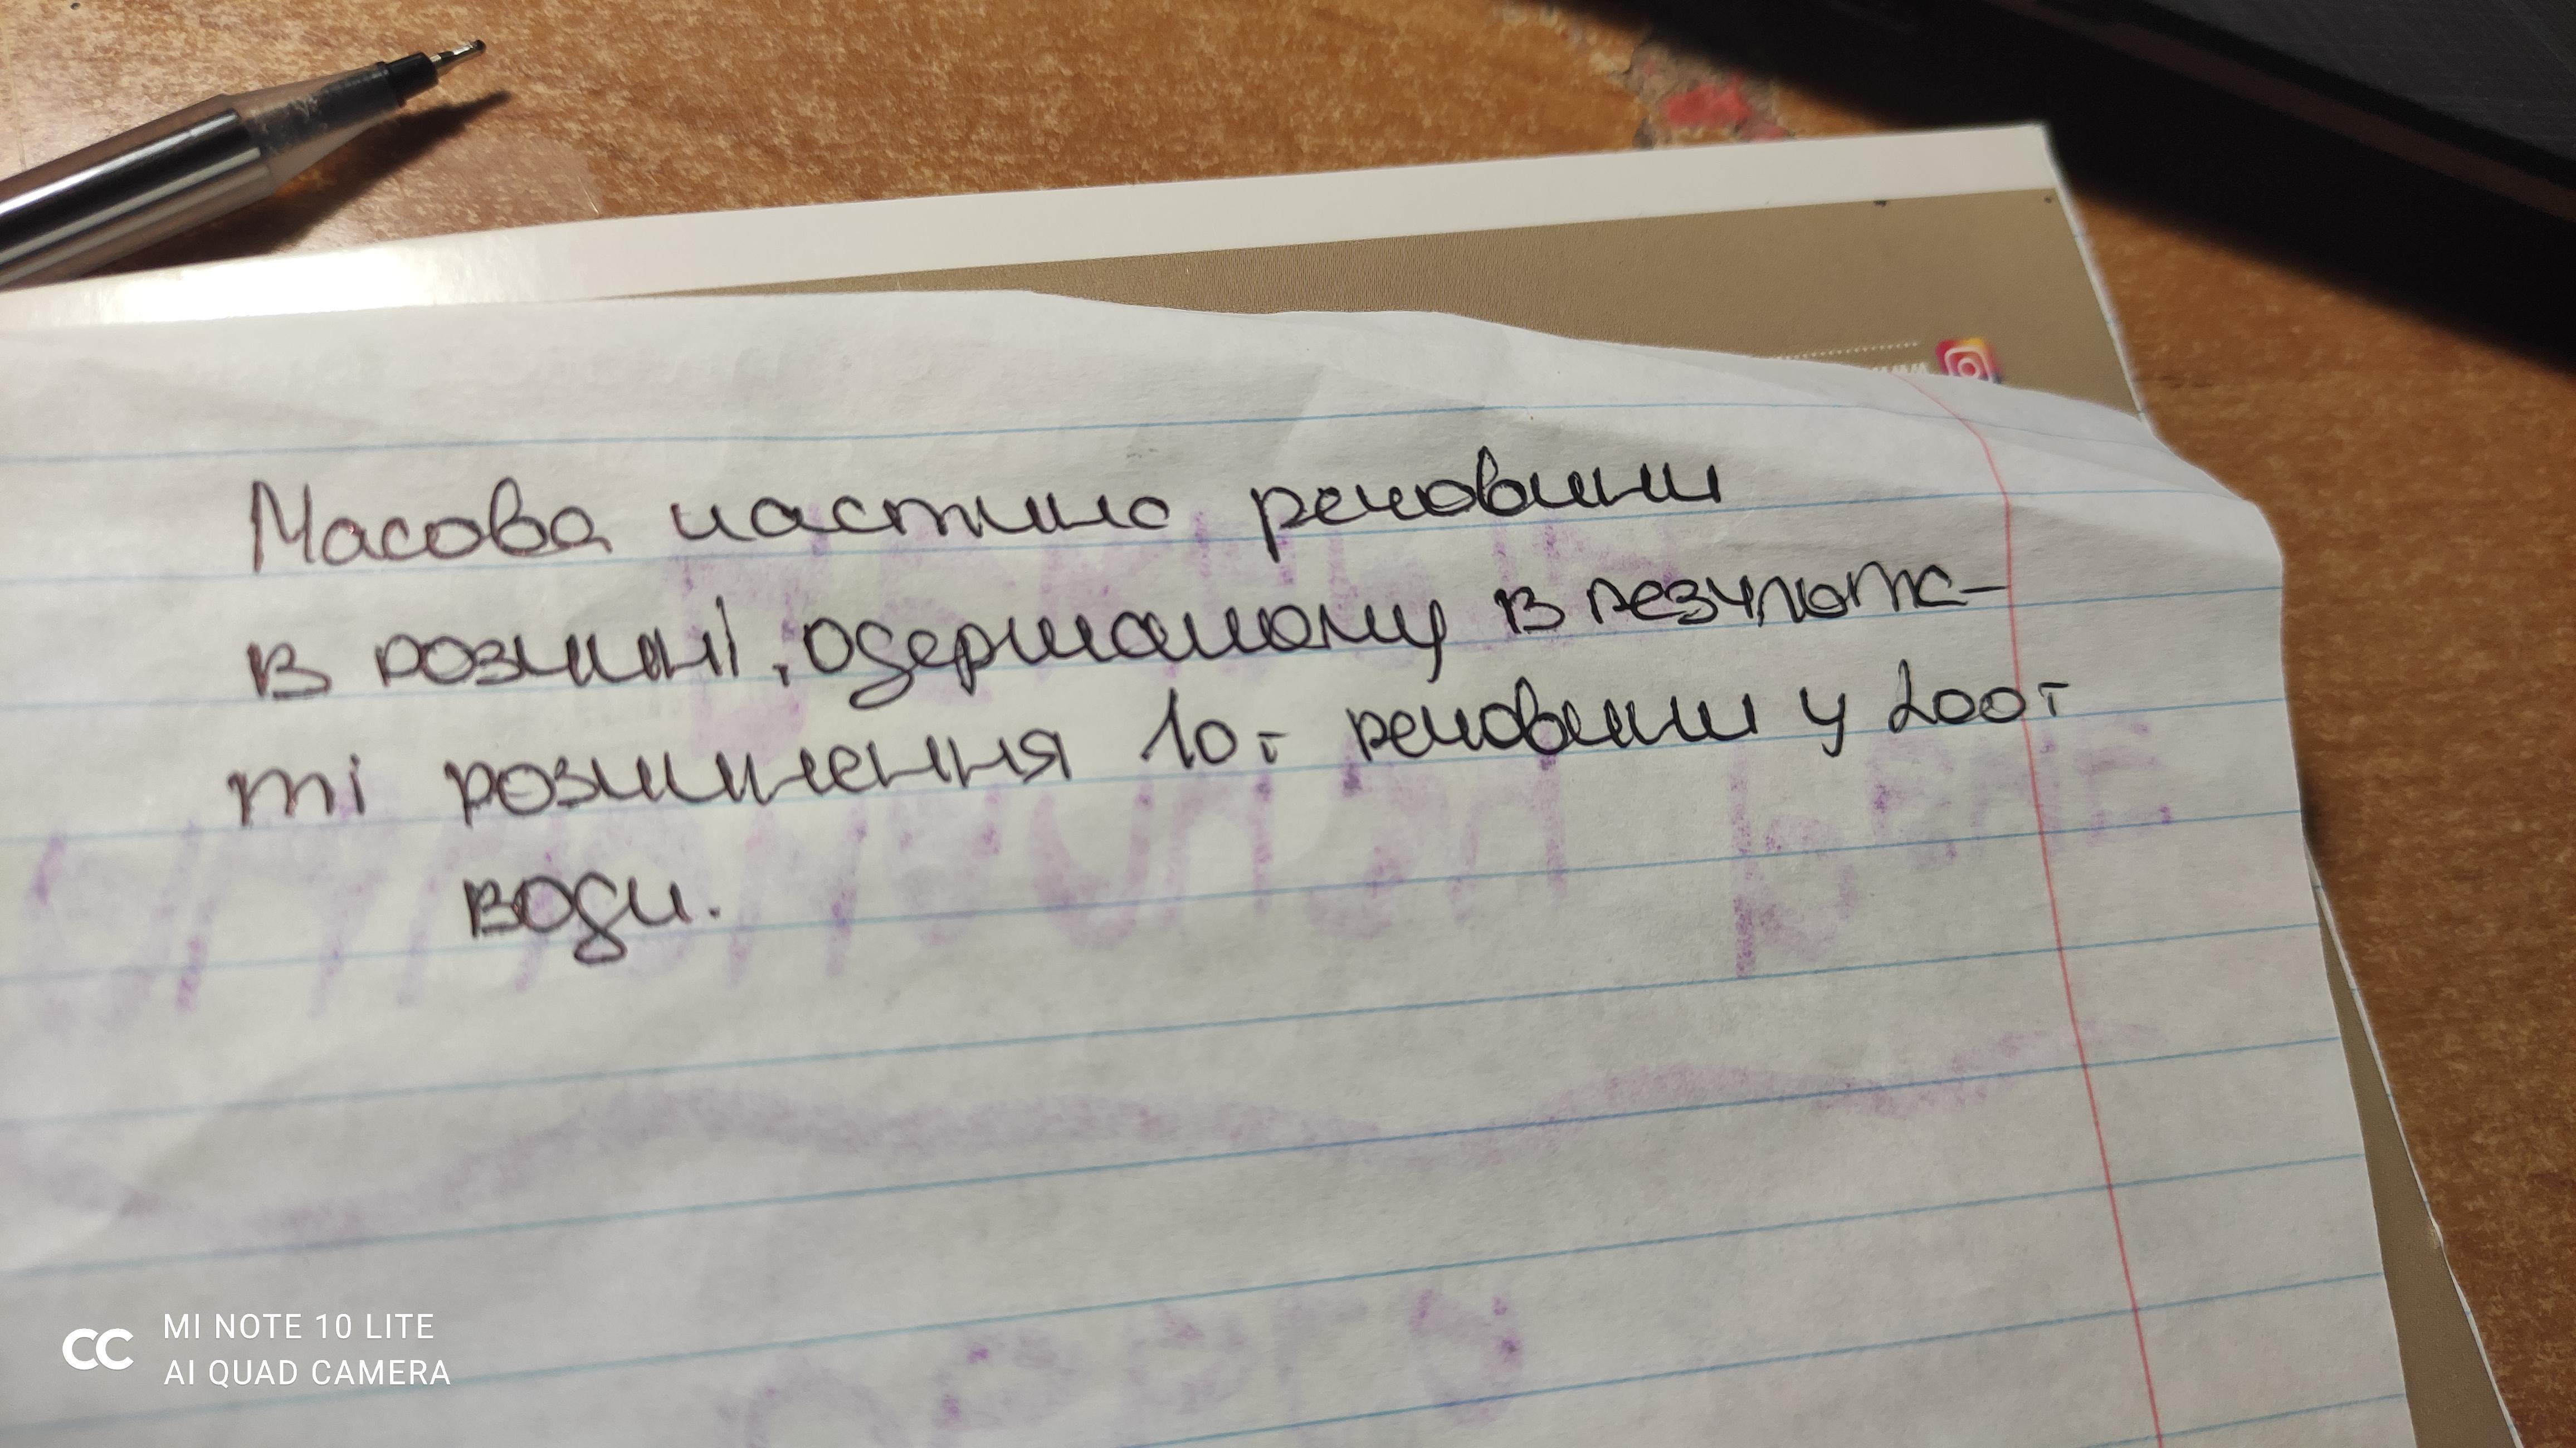 Масова частина речовини
в розчині, одержаному в результа-
ті розчинення 10г речовини у 200г
води.
MI NOTE 10 LITE
AI QUAD CAMERA